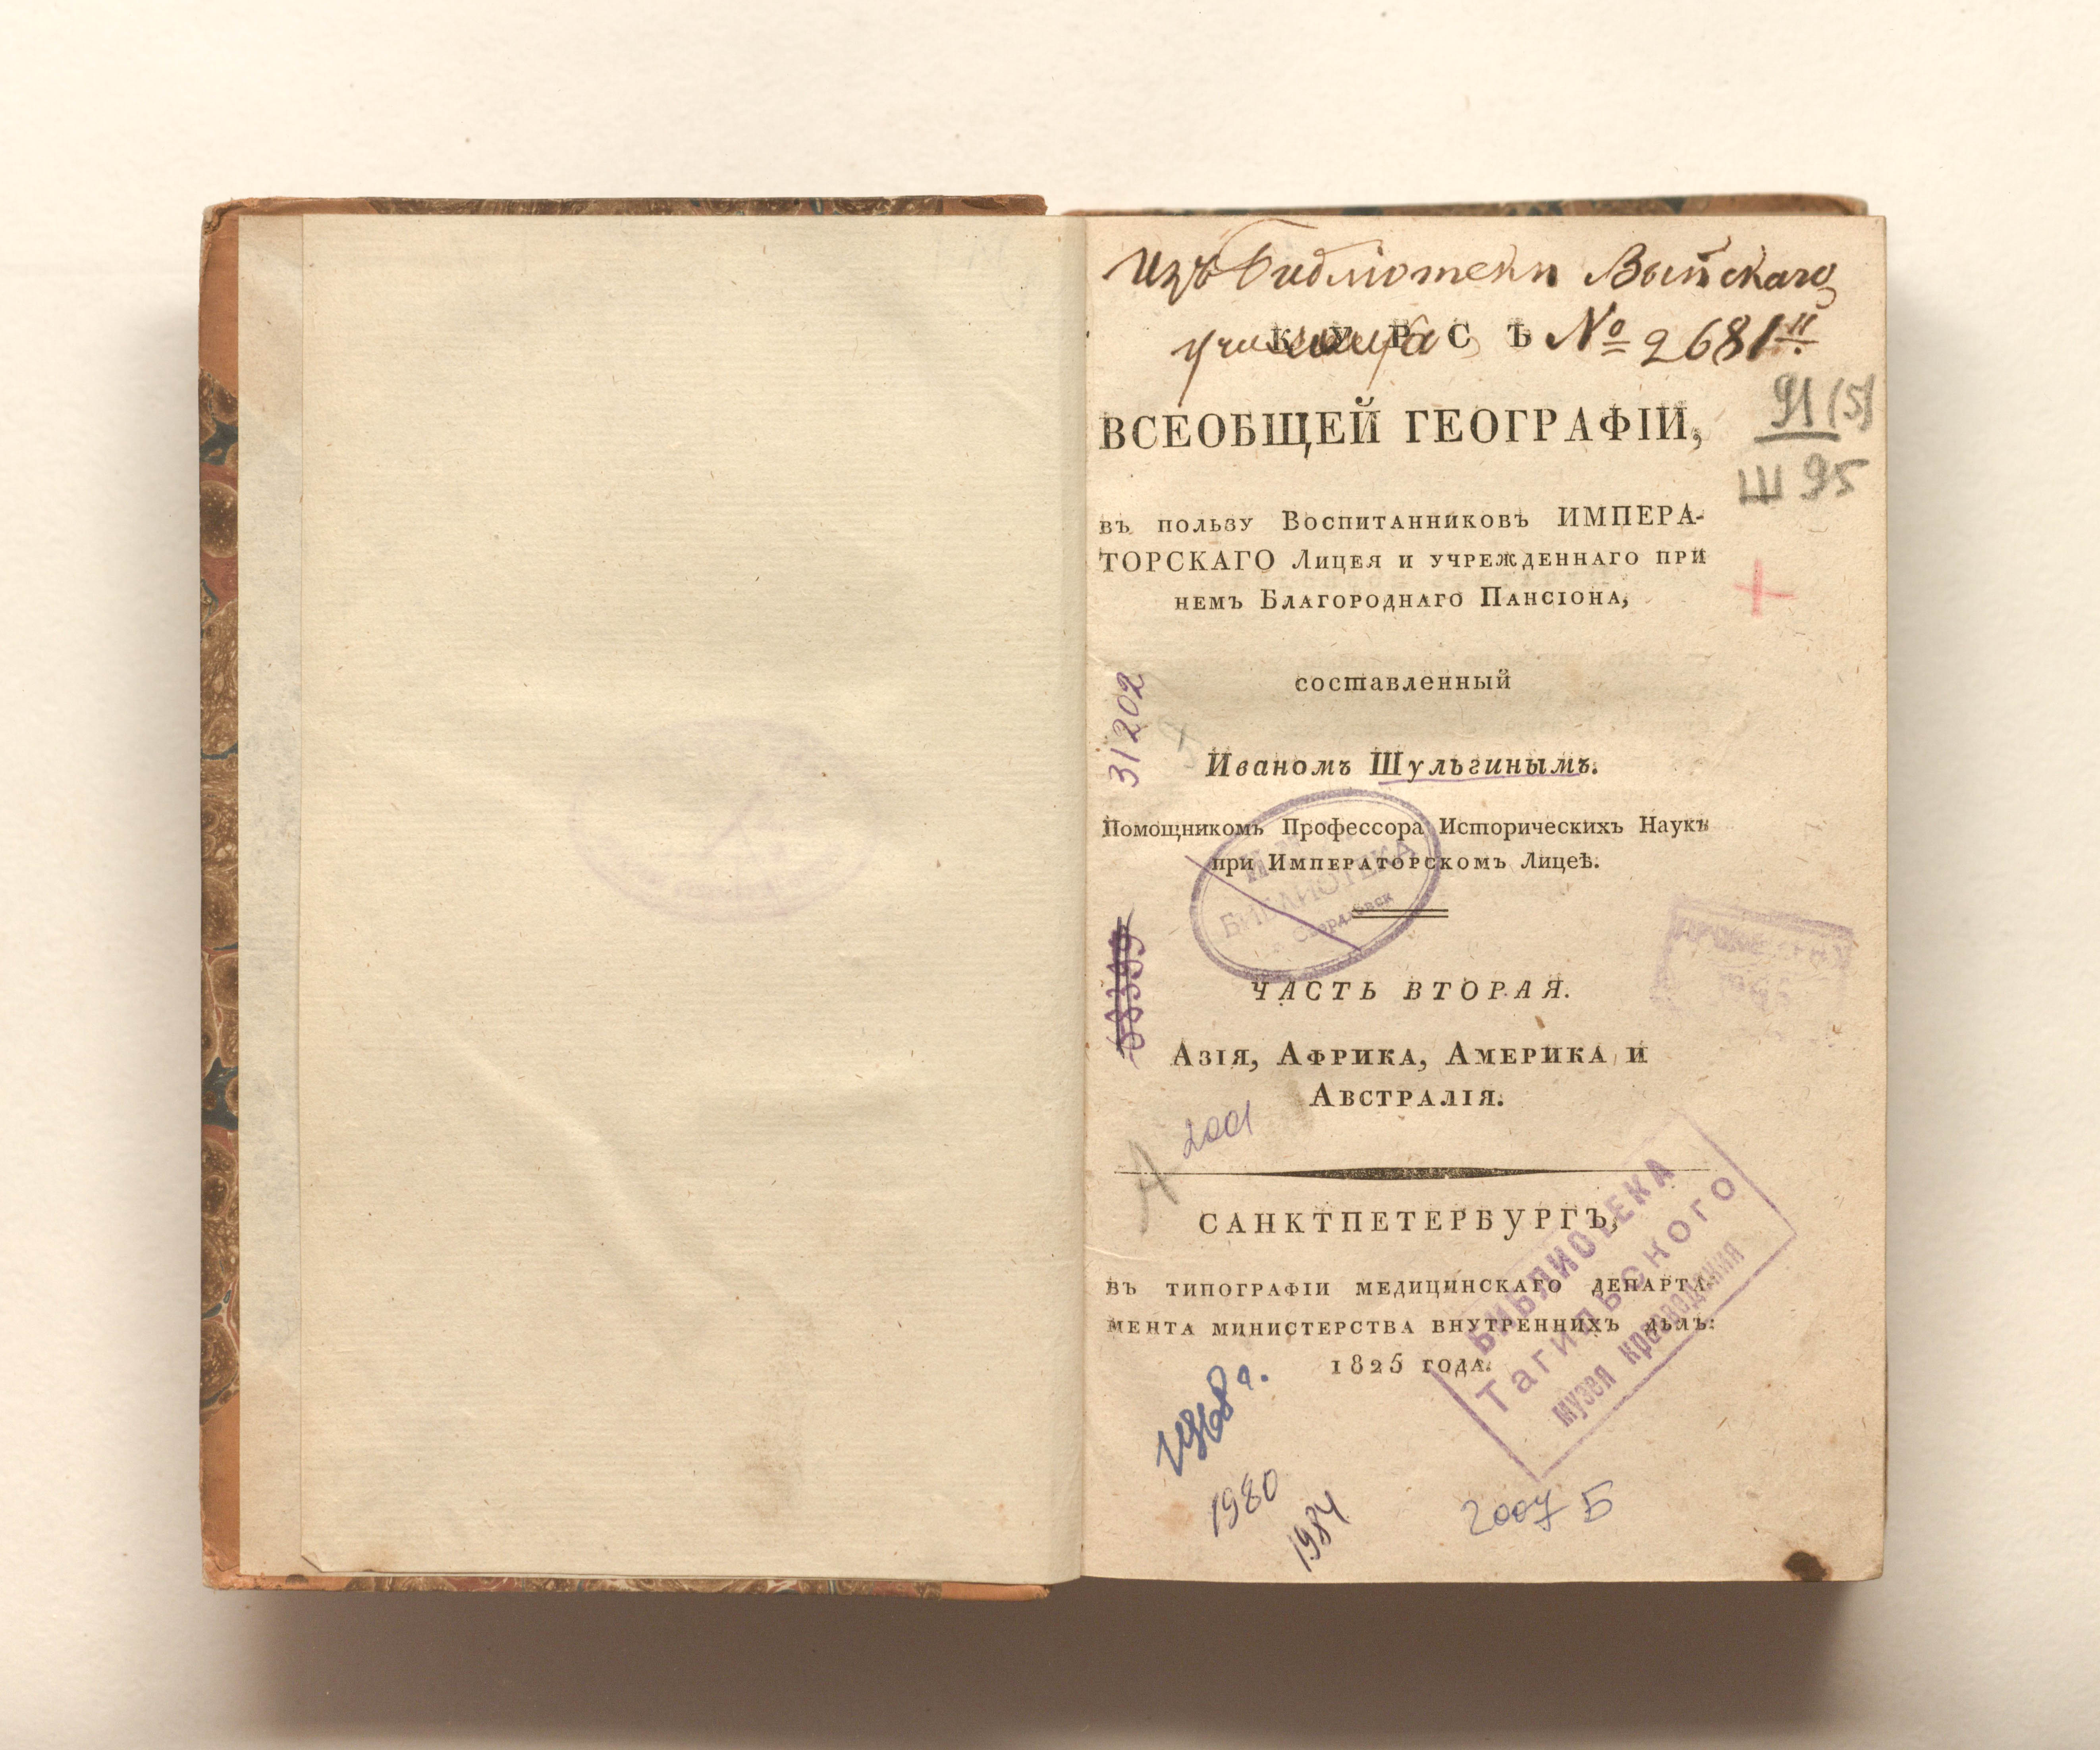 Изъ Библіотеки Выйскаго
училища № 2681й
КУРСЪ
ВСЕОБЩЕЙ ГЕОГРАФІИ,
91(5)
Ш 95
въ пользу Воспитанниковъ ИМПЕРА-
ТОРСКАГО Лицея и учрежденнаго при
немъ Благороднаго Пансіона,
+
составленный
31202
Иваномъ Шульгинымъ.
Помощникомъ Профессора Историческихъ Наукъ
при Императорскомъ Лицеѣ.
БИБЛИОТЕКА
Свердловск
ЧАСТЬ ВТОРАЯ.
Азія, Африка, Америка и
Австралія.
2001
А
САНКТПЕТЕРБУРГЪ,
въ типографіи медицинскаго департа-
мента министерства внутреннихъ дѣлъ:
1825 года.
БИБЛИОТЕКА
Тагильского
музея краеведения
1980
1984
2007 Б